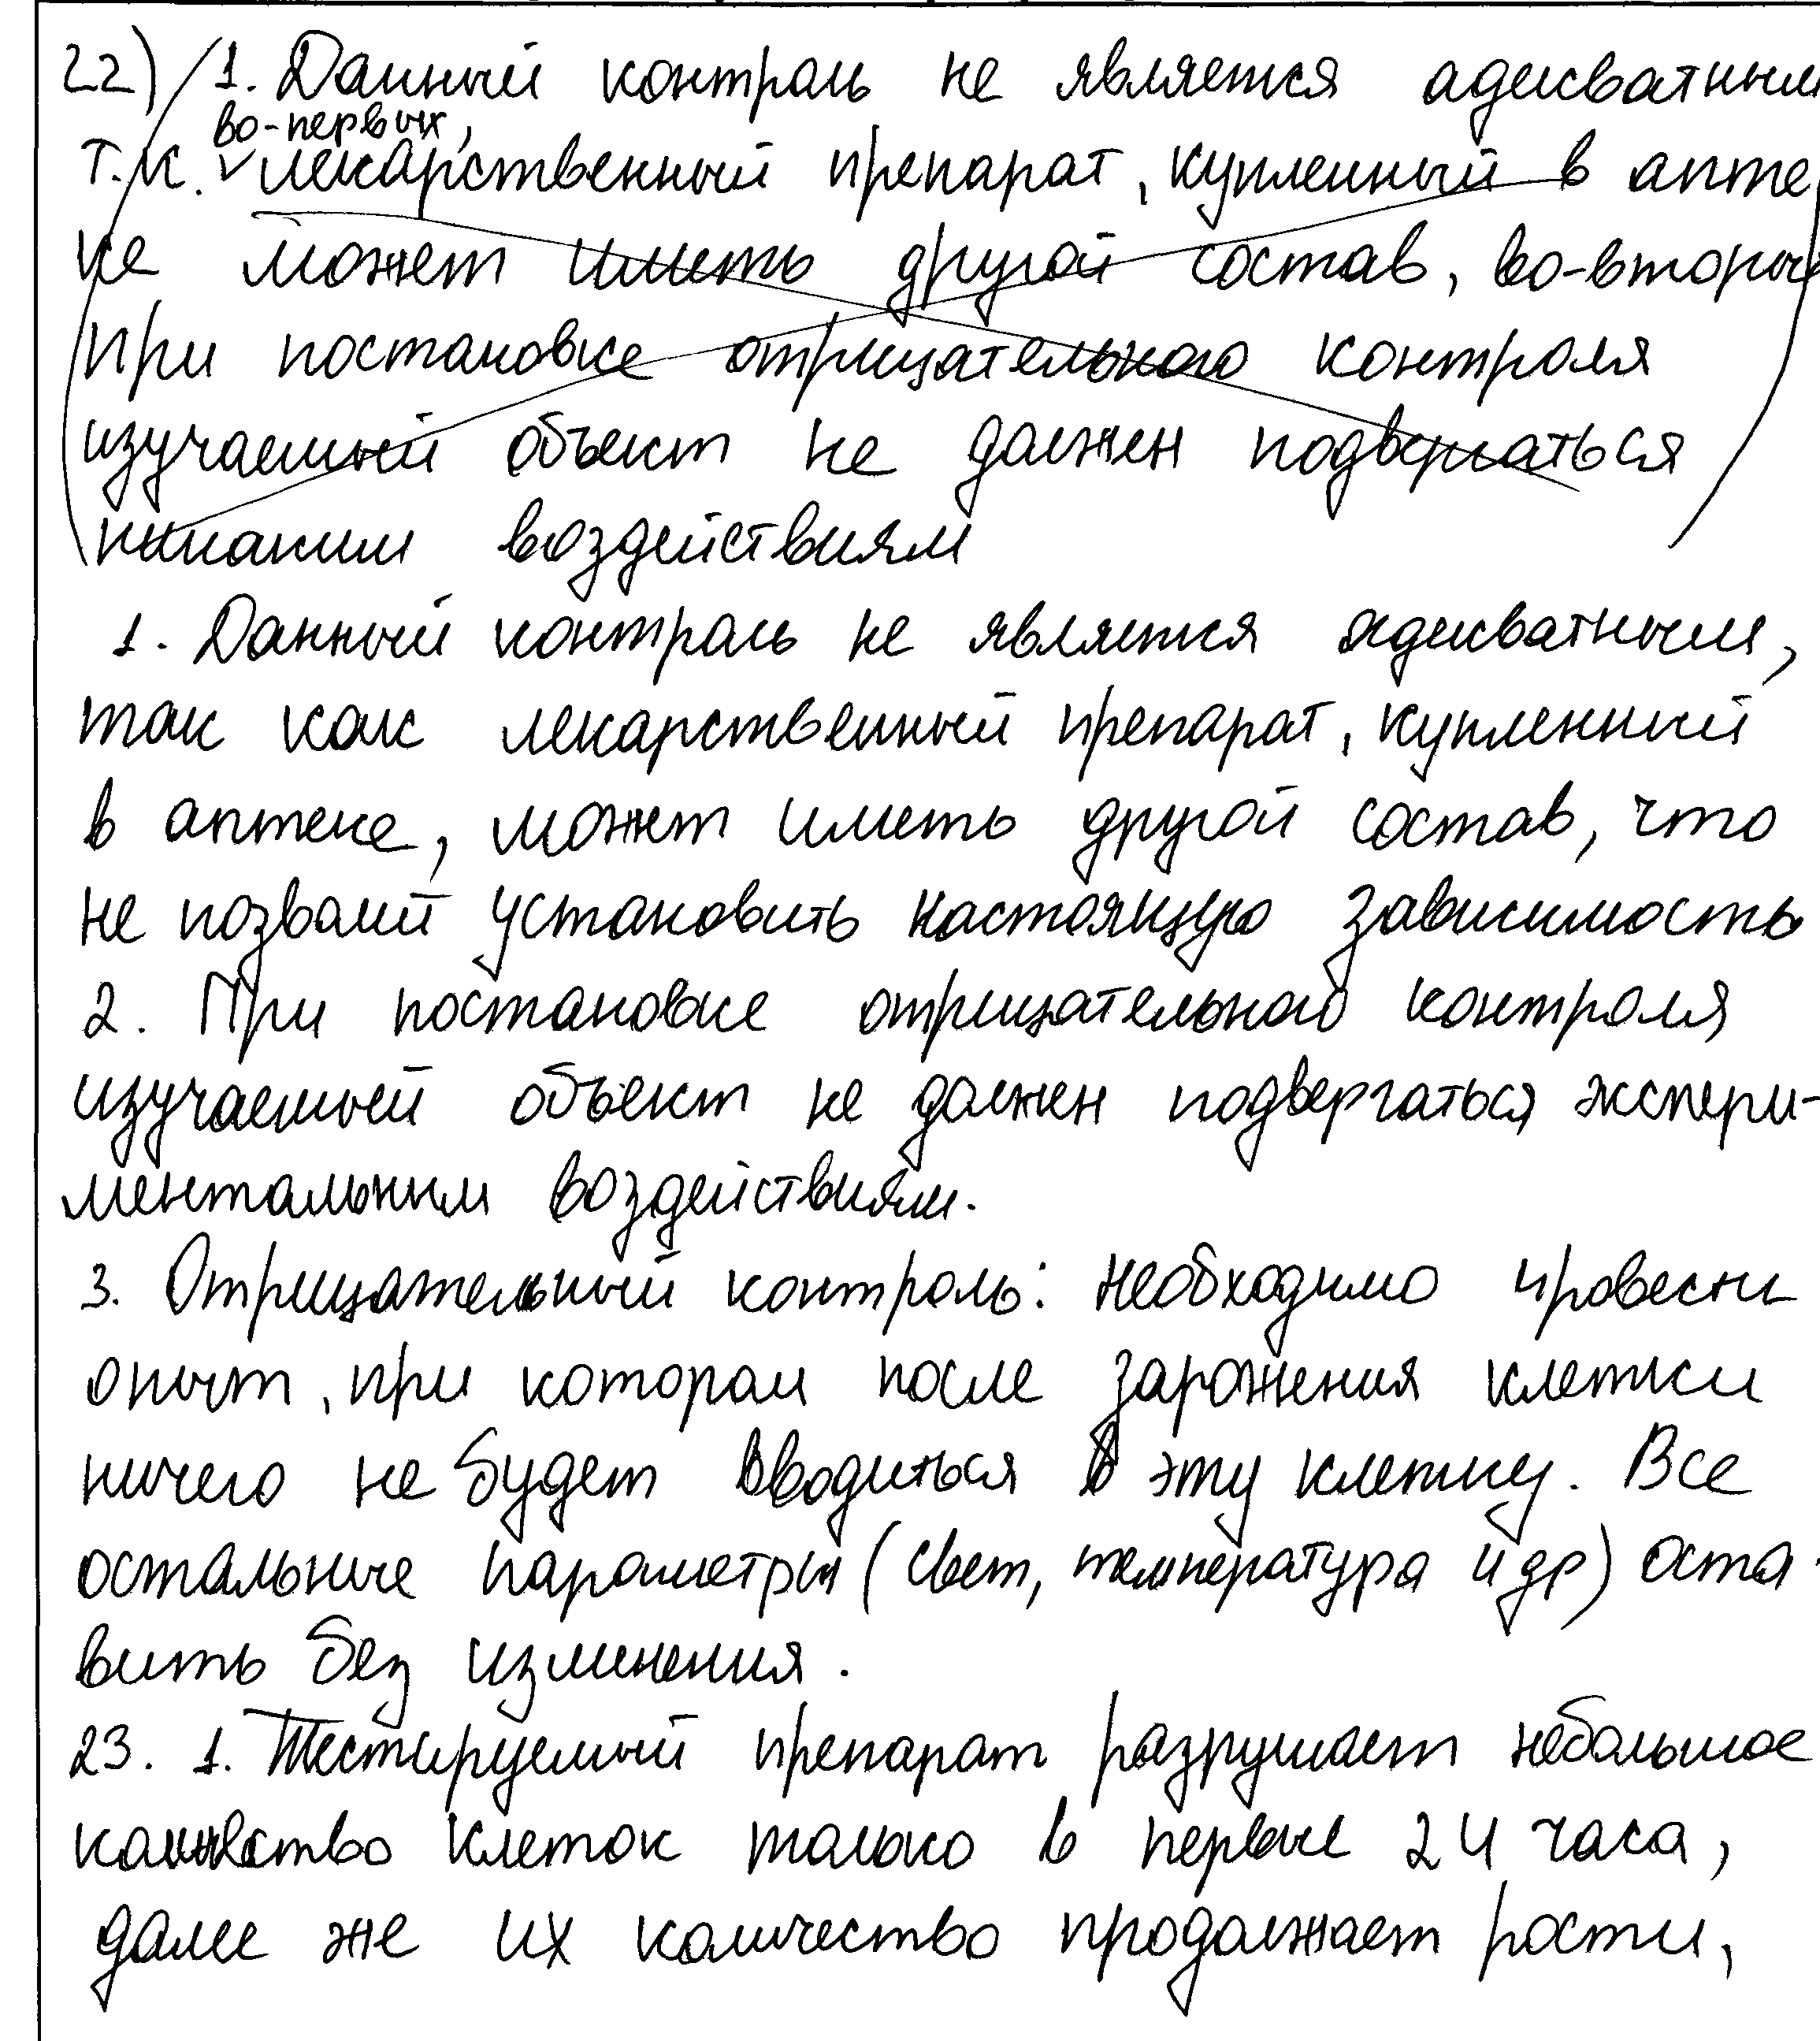 22) 1. Данный контроль не является адекватным
во-первых,
т.к. лекарственный препарат, купленный в апте
ке может иметь другой состав, во-вторых
при постановке отрицательного контроля
изучаемый объект не должен подвергаться
никаким воздействиям
1. Данный контроль не является адекватным,
так как лекарственный препарат, купленный
в аптеке, может иметь другой состав, что
не позволит установить настоящую зависимость
2. При постановке отрицательного контроля
изучаемый объект не должен подвергаться экспери-
ментальным воздействиям.
3. Отрицательный контроль: необходимо провести
опыт, при котором после заражения клетки
ничего не будет вводиться в эту клетку. Все
остальные параметры (свет, температура и др) оста-
вить без изменения.
23. 1. Тестируемый препарат разрушает небольшое
количество клеток только в первые 24 часа,
далее же их количество продолжает рости,